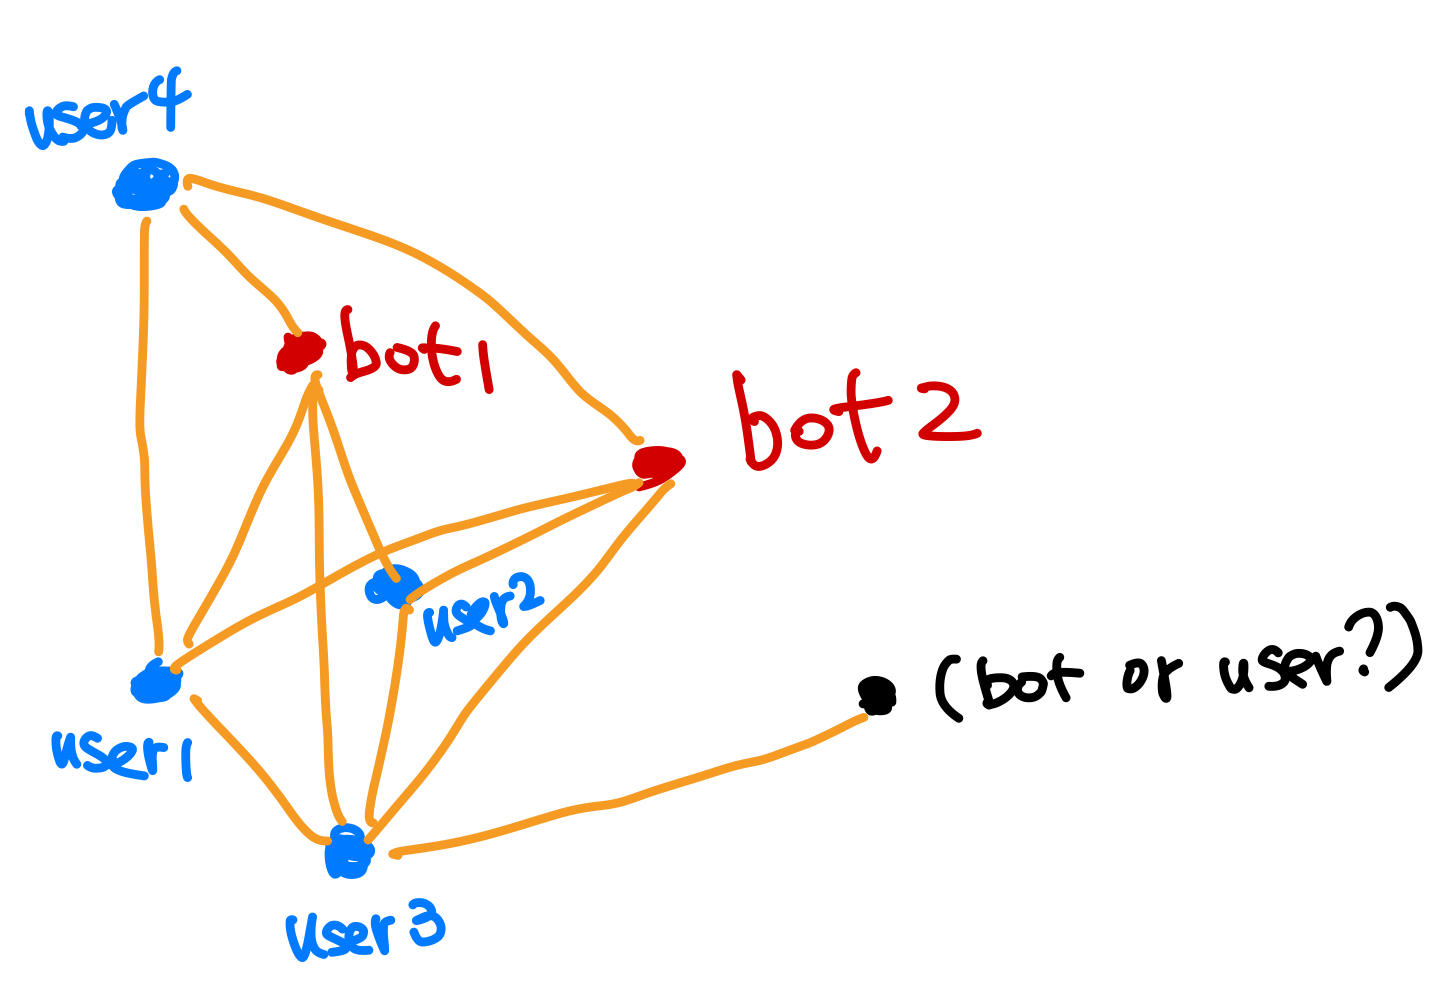 user4
bot1
bot2
user2
(bot or user?)
user1
user3